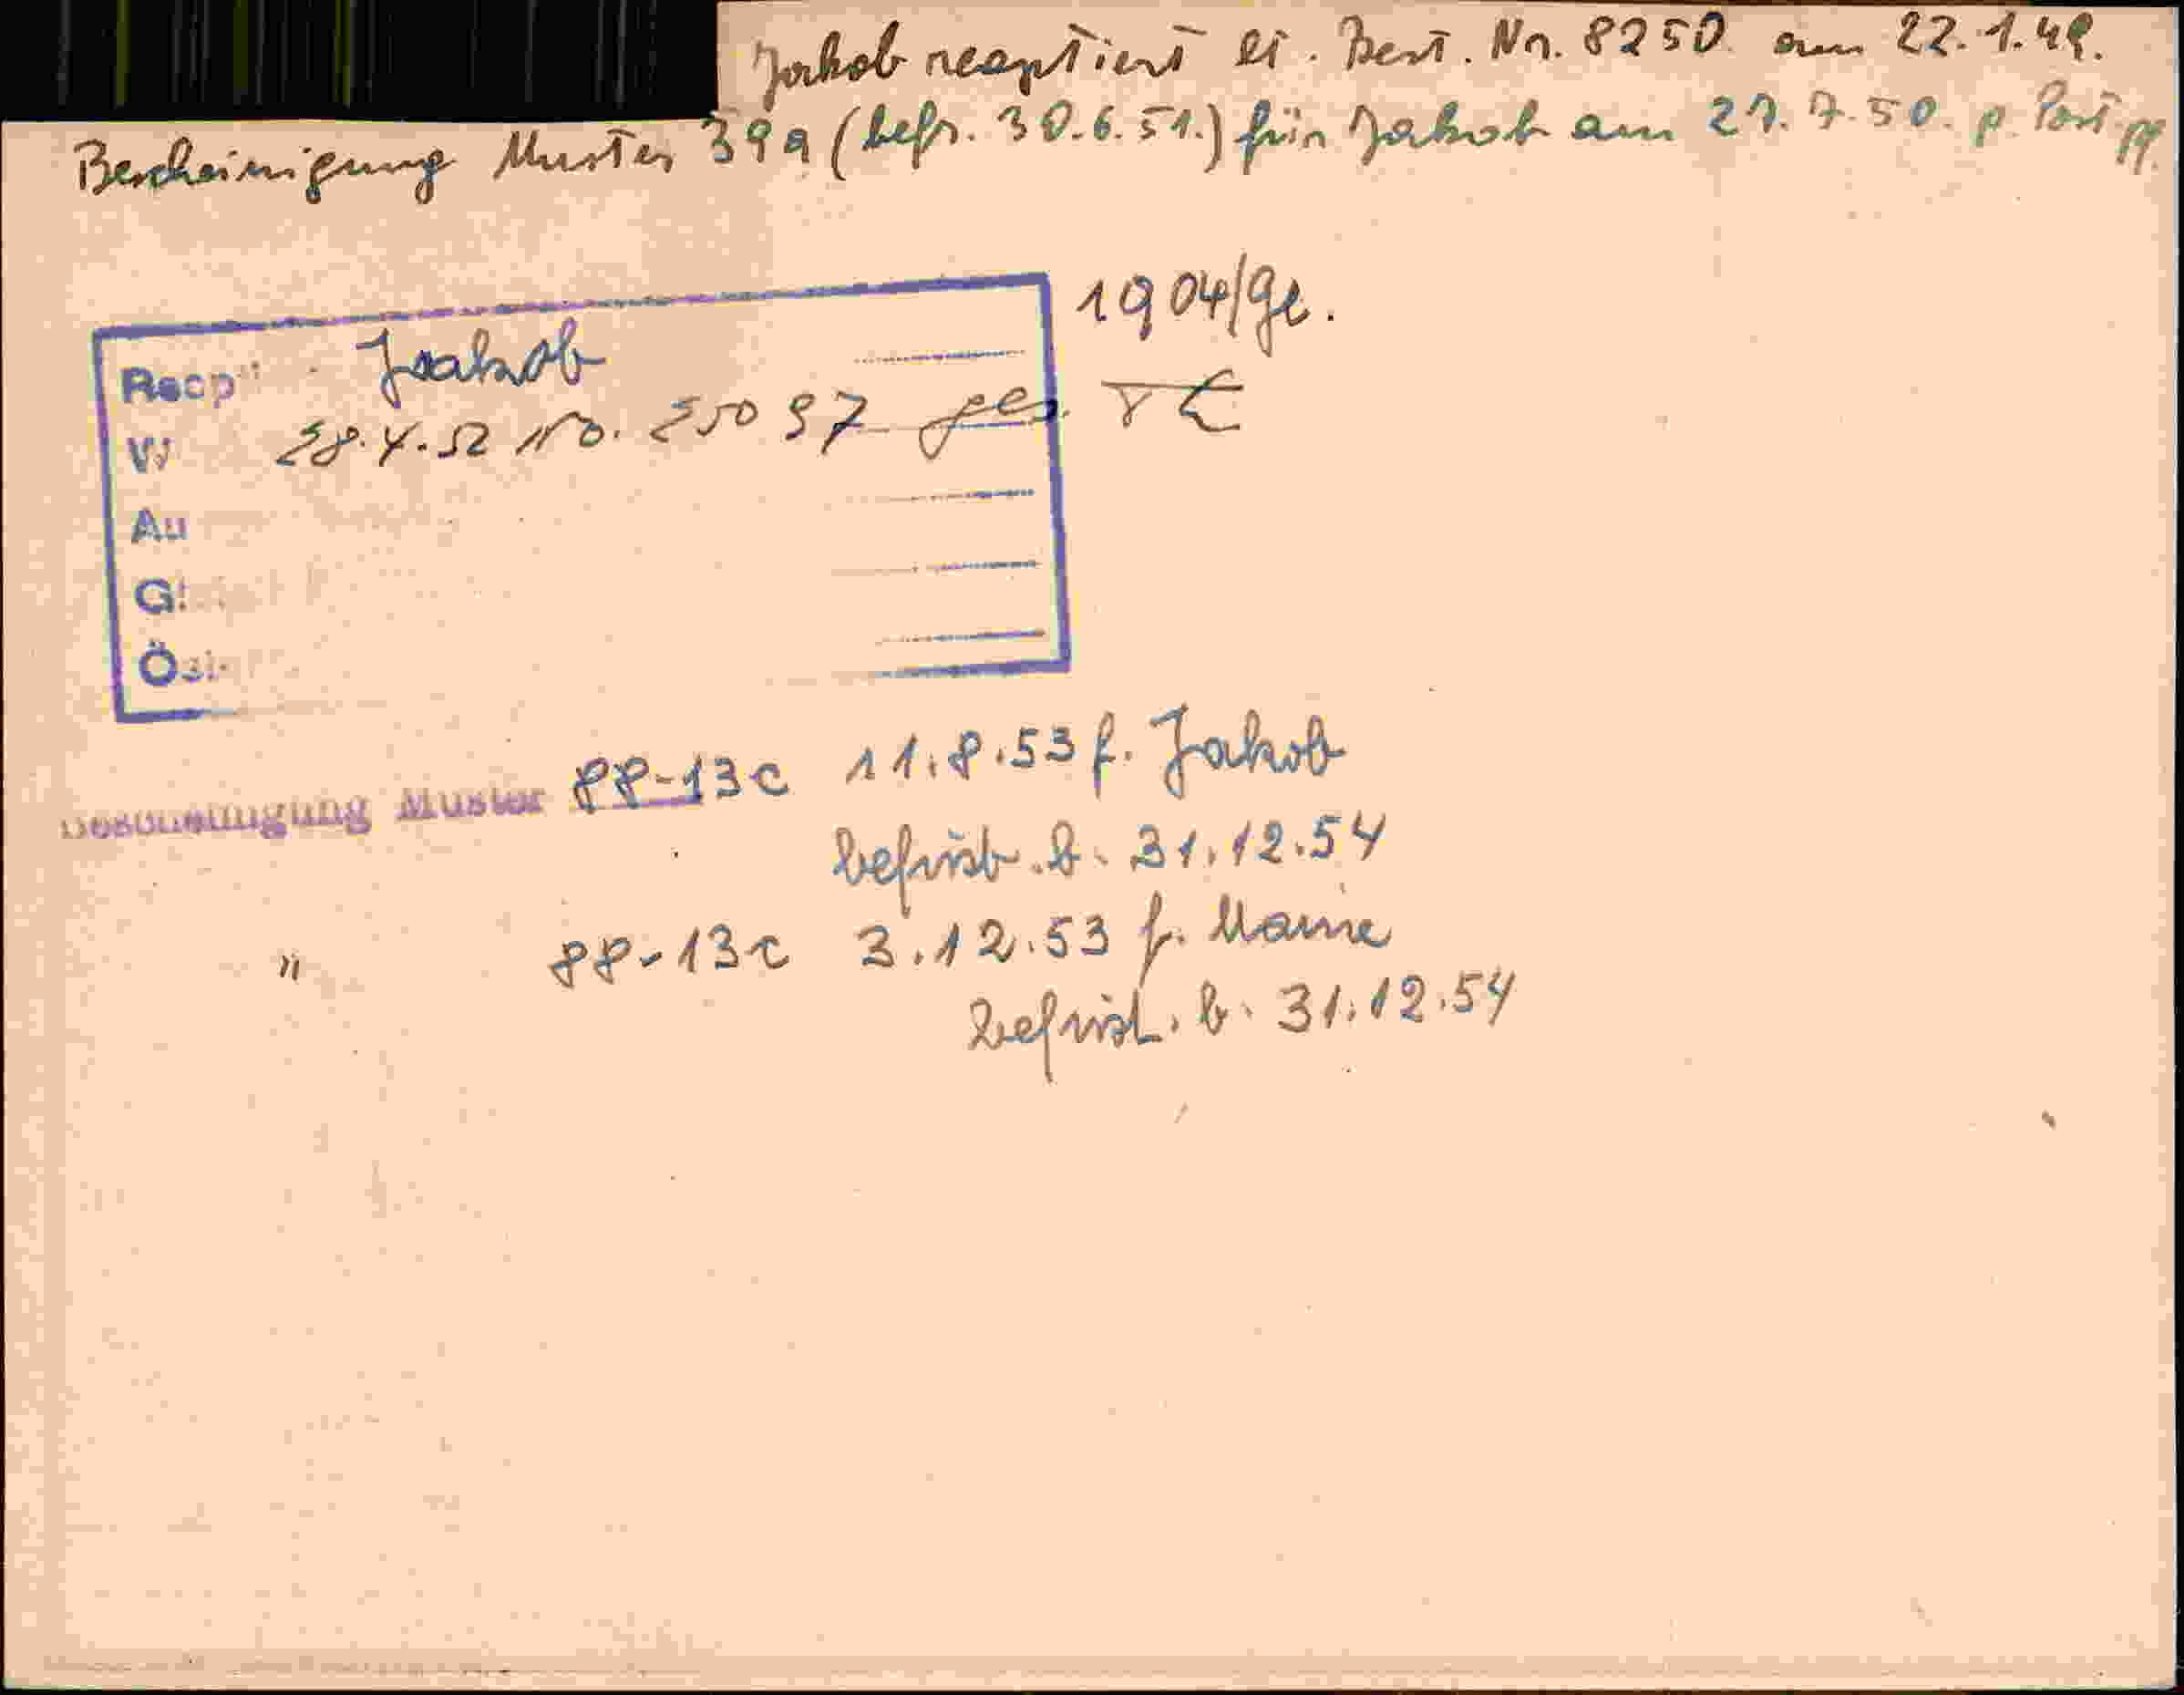 Jakob reoptiert lt. Best. Nr. 8250 am 22.1.48.
Bescheinigung Muster 39a (befr. 30.6.51.) für Jakob am 27.7.50. p. Post
1904/Gl.
Jakob
28.4.52 No. 25097 ges.
W
Au
G
Ö
Bescheinigung Muster 88-13c 11.8.53 f. Jakob
befrist. b. 31.12.54
" 88-13c 3.12.53 f. Marie
befrist. b. 31.12.54